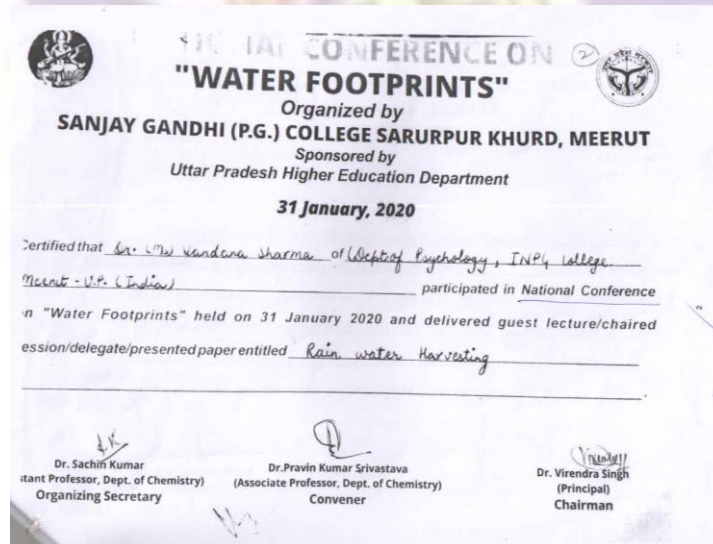 CONFERENCE ON 2
"WATER FOOTPRINTS"
Organized by
SANJAY GANDHI (P.G.) COLLEGE SARURPUR KHURD, MEERUT
Sponsored by
Uttar Pradesh Higher Education Department
31 January, 2020
Certified that Dr. (Ms) Vandana Sharma of (Dept of Psychology, INPG College
Meerut - U.P. (India) participated in National Conference
n "Water Footprints" held on 31 January 2020 and delivered guest lecture/chaired
ession/delegate/presented paper entitled Rain water Harvesting
Dr. Sachin Kumar
stant Professor, Dept. of Chemistry)
Organizing Secretary
Dr.Pravin Kumar Srivastava
(Associate Professor, Dept. of Chemistry)
Convener
Dr. Virendra Singh
(Principal)
Chairman